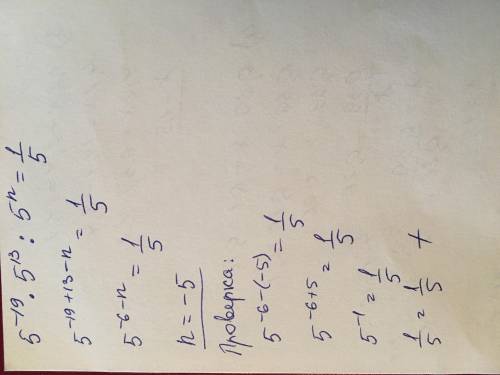 5⁻¹⁹ · 5¹³ : 5ⁿ = 1/5
5⁻¹⁹⁺¹³⁻ⁿ = 1/5
5⁻⁶⁻ⁿ = 1/5
n = -5
Проверка:
5⁻⁶⁻⁽⁻⁵⁾ = 1/5
5⁻⁶⁺⁵ = 1/5
5⁻¹ = 1/5
1/5 = 1/5 +